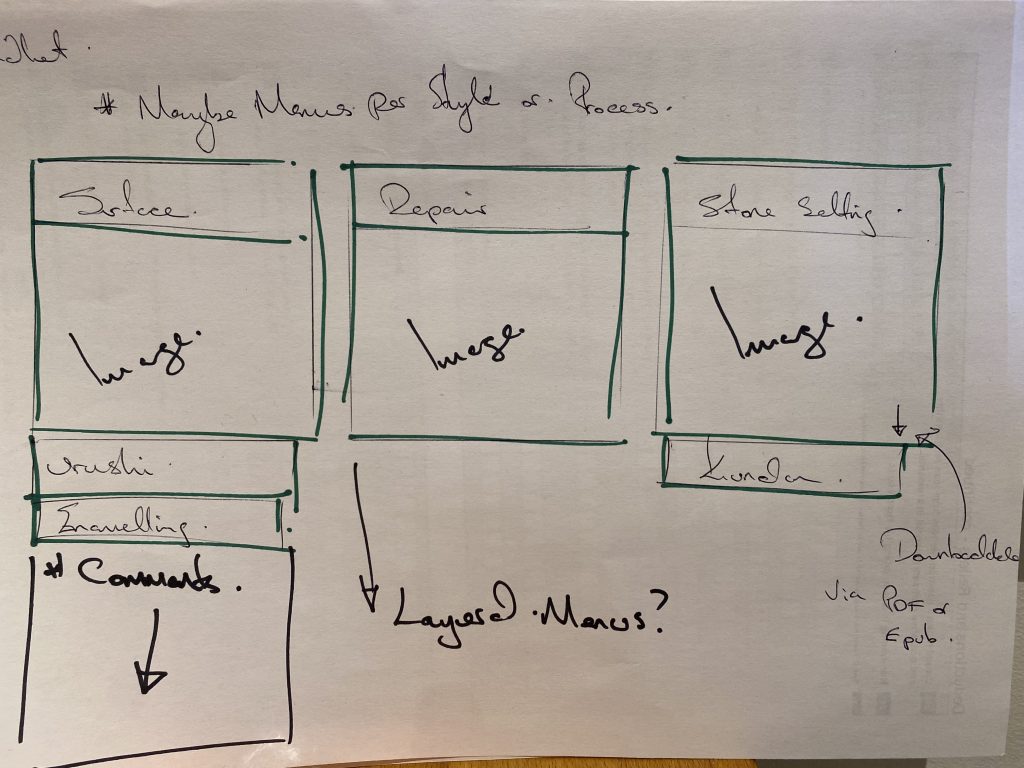 # Maybe Menus per Style or Process.
Surface.
Repair
Stone Setting.
Image.
Image.
Image.
Urushi.
Kundan.
Enamelling.
* Comments.
Layered Menus?
via PDF or
Epub.